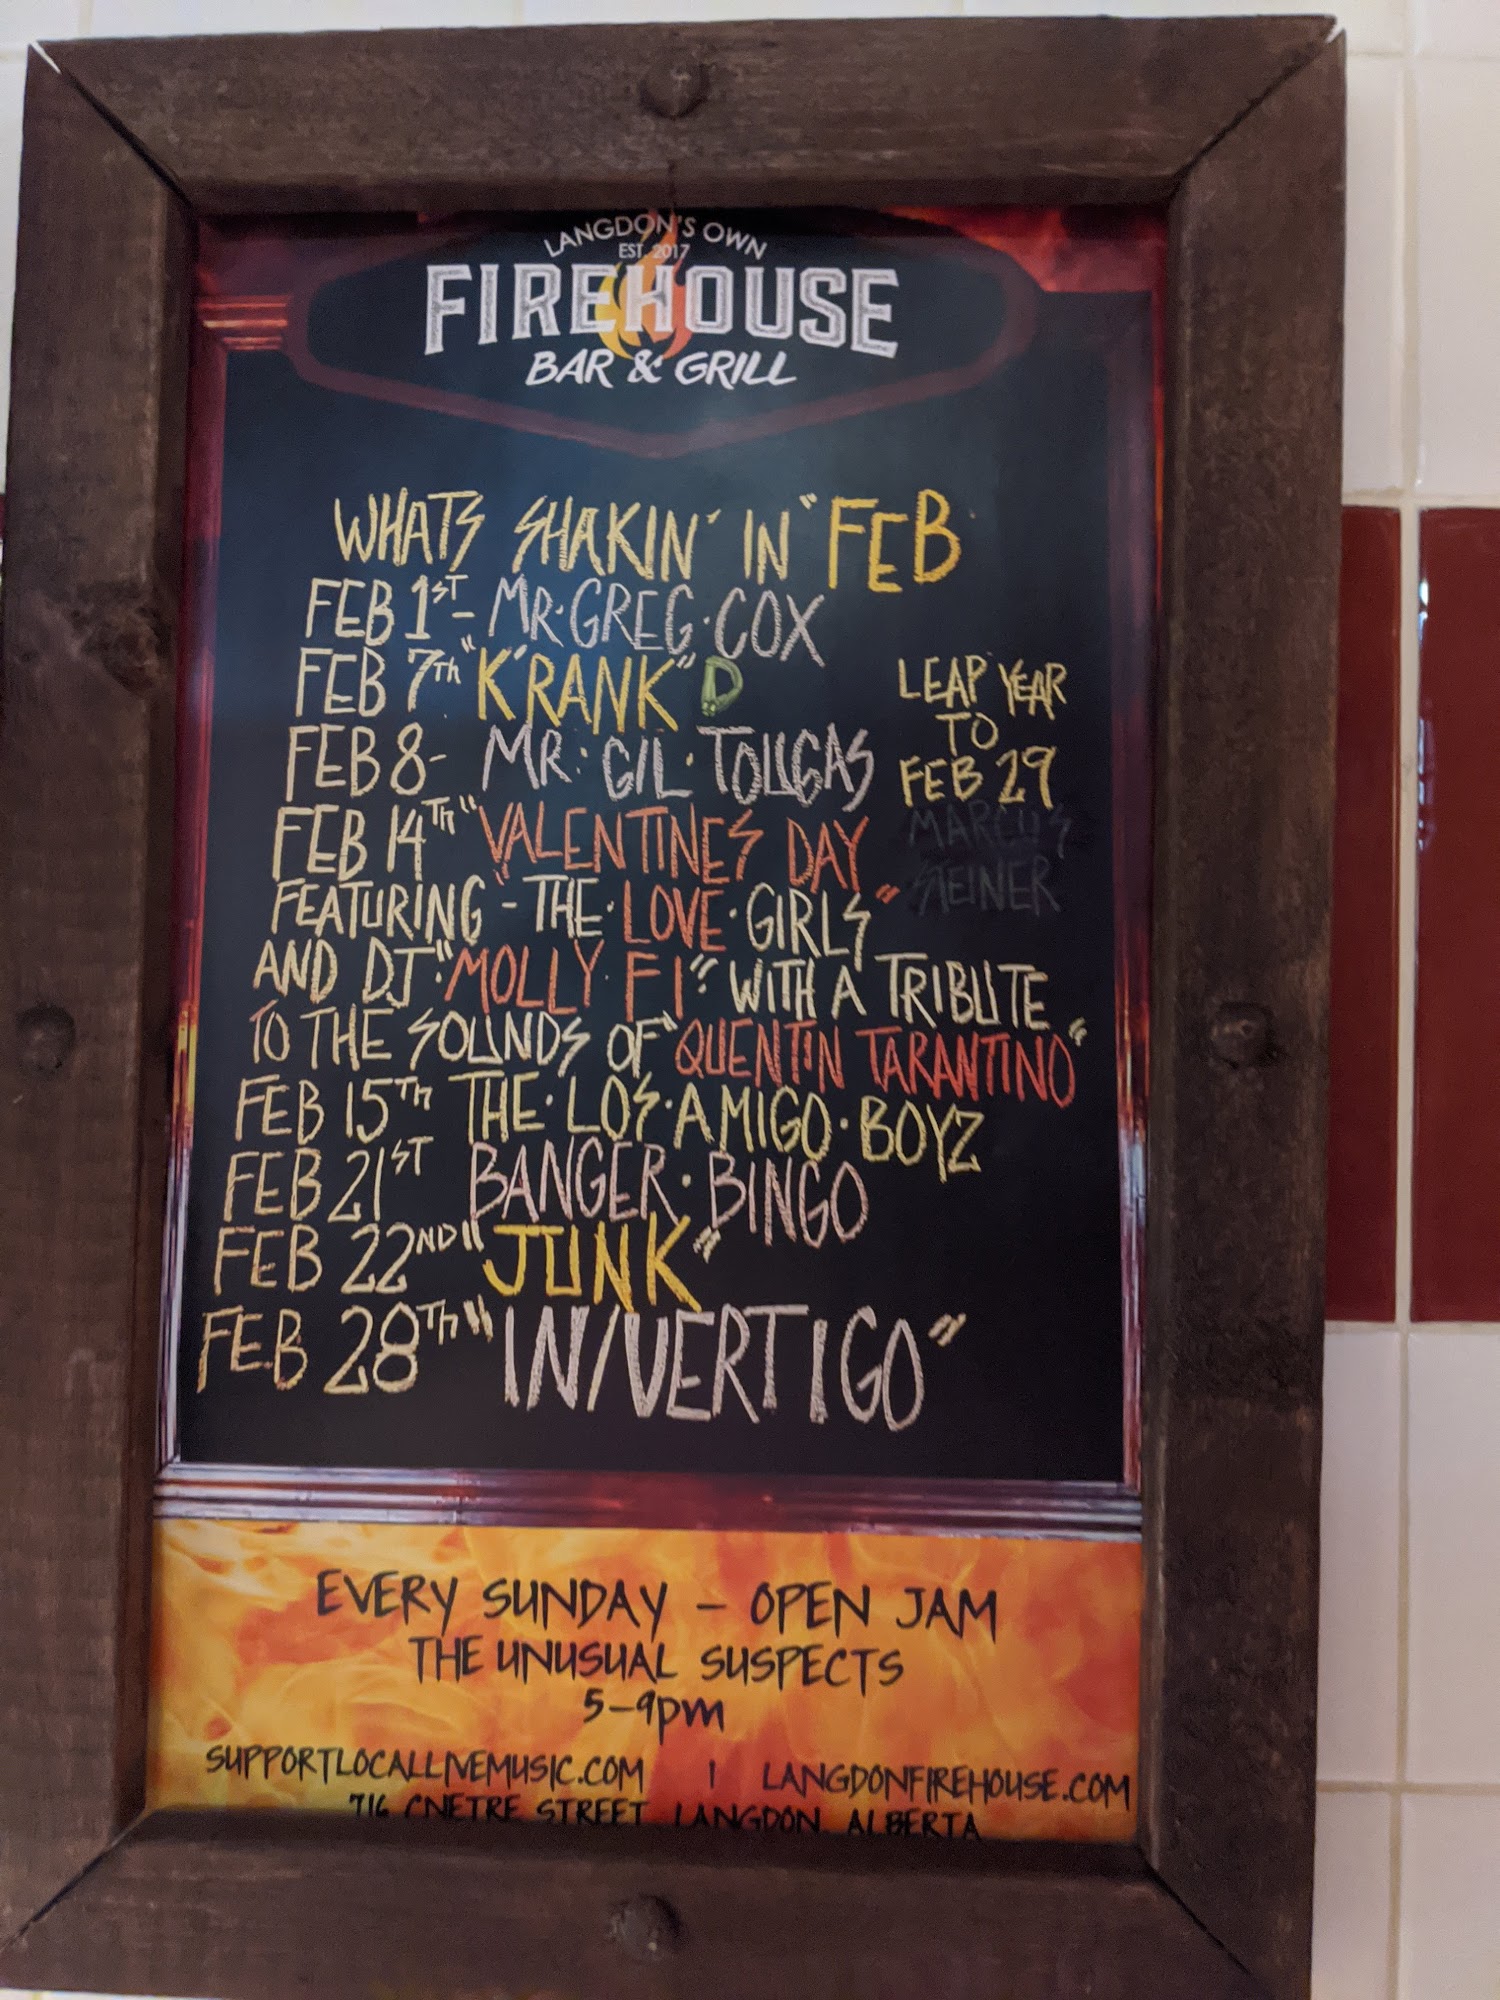 LANGDON'S OWN
EST. 2017
FIREHOUSE
BAR & GRILL
WHATS SHAKIN' IN "FEB
FEB 1ST - MR·GREG·COX
FEB 7TH "K'RANK" D
FEB 8 - MR·GIL·TOUGAS
FEB 14TH "VALENTINES DAY
FEATURING - THE·LOVE·GIRLS"
AND DJ "MOLLY·FI" WITH A TRIBUTE
TO THE SOUNDS OF "QUENTIN TARANTINO"
FEB 15TH THE·LOS·AMIGO·BOYZ
FEB 21ST BANGER·BINGO
FEB 22ND "JUNK"
FEB 28TH "IN/VERTIGO"
LEAP YEAR
TO
FEB 29
MARCUS
STEINER
EVERY SUNDAY - OPEN JAM
THE UNUSUAL SUSPECTS
5-9pm
SUPPORTLOCALLIVEMUSIC.COM | LANGDONFIREHOUSE.COM
716 CNETRE STREET LANGDON, ALBERTA